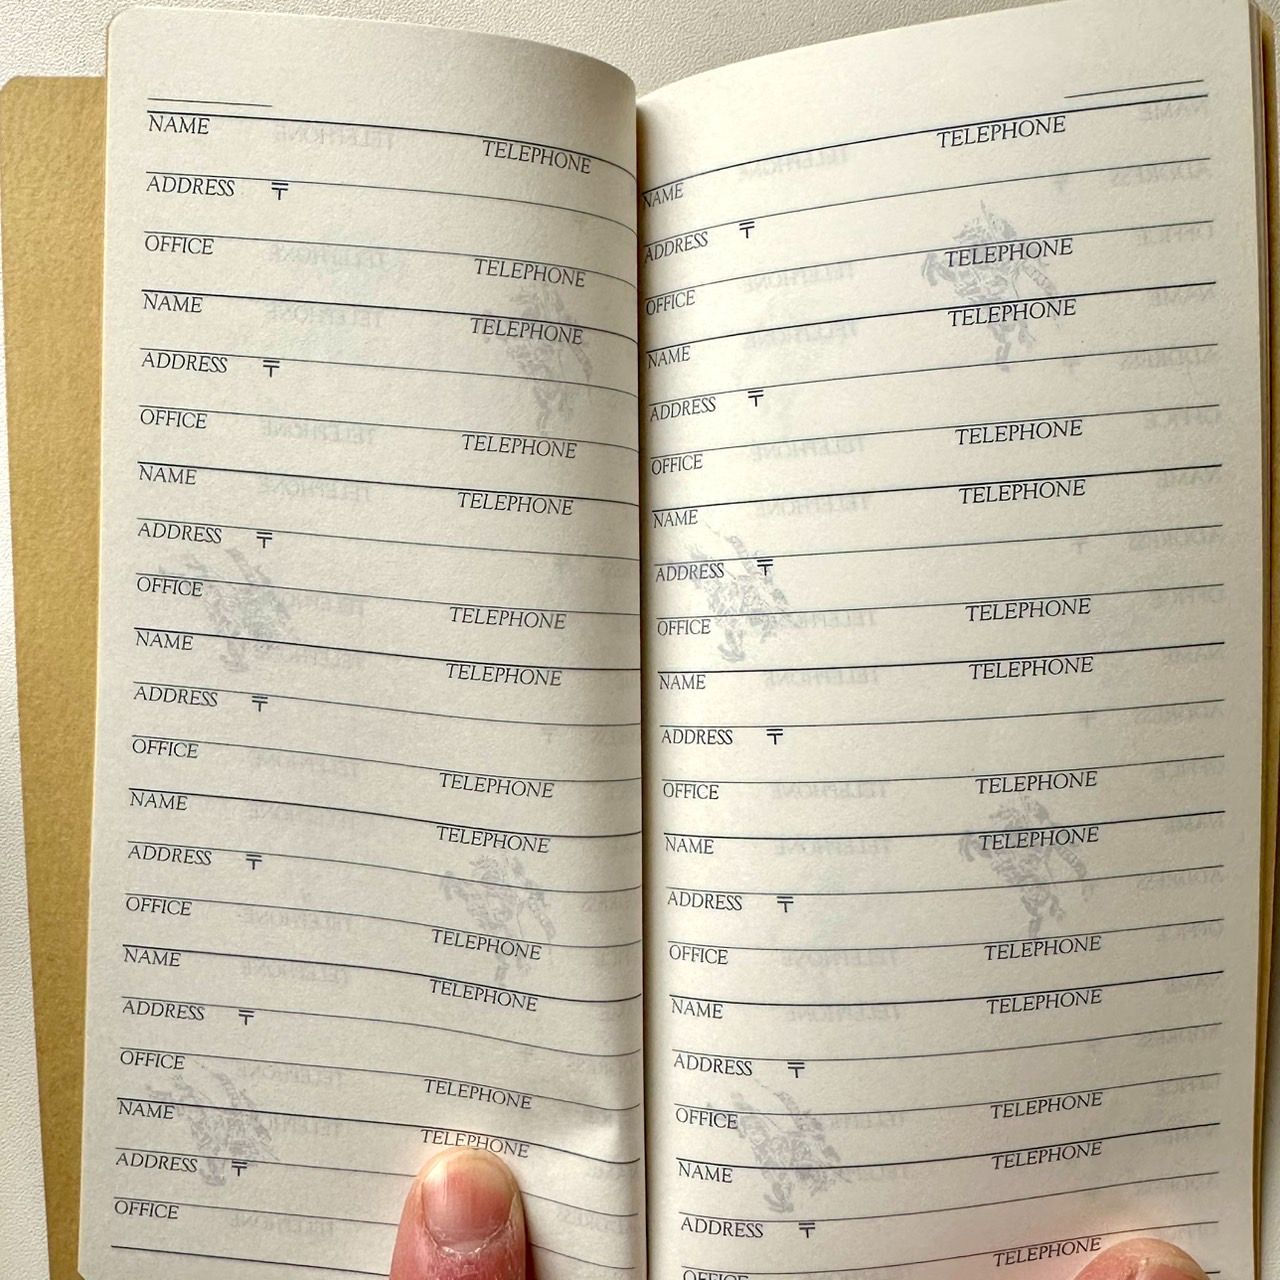 NAME TELEPHONE
ADDRESS 〒
OFFICE TELEPHONE
NAME TELEPHONE
ADDRESS 〒
OFFICE TELEPHONE
NAME TELEPHONE
ADDRESS 〒
OFFICE TELEPHONE
NAME TELEPHONE
ADDRESS 〒
OFFICE TELEPHONE
NAME TELEPHONE
ADDRESS 〒
OFFICE TELEPHONE
NAME TELEPHONE
ADDRESS 〒
OFFICE TELEPHONE
NAME TELEPHONE
ADDRESS 〒
OFFICE
NAME TELEPHONE
ADDRESS 〒
OFFICE TELEPHONE
NAME TELEPHONE
ADDRESS 〒
OFFICE TELEPHONE
NAME TELEPHONE
ADDRESS 〒
OFFICE TELEPHONE
NAME TELEPHONE
ADDRESS 〒
OFFICE TELEPHONE
NAME TELEPHONE
ADDRESS 〒
OFFICE TELEPHONE
NAME TELEPHONE
ADDRESS 〒
OFFICE TELEPHONE
NAME TELEPHONE
ADDRESS 〒
OFFICE TELEPHONE